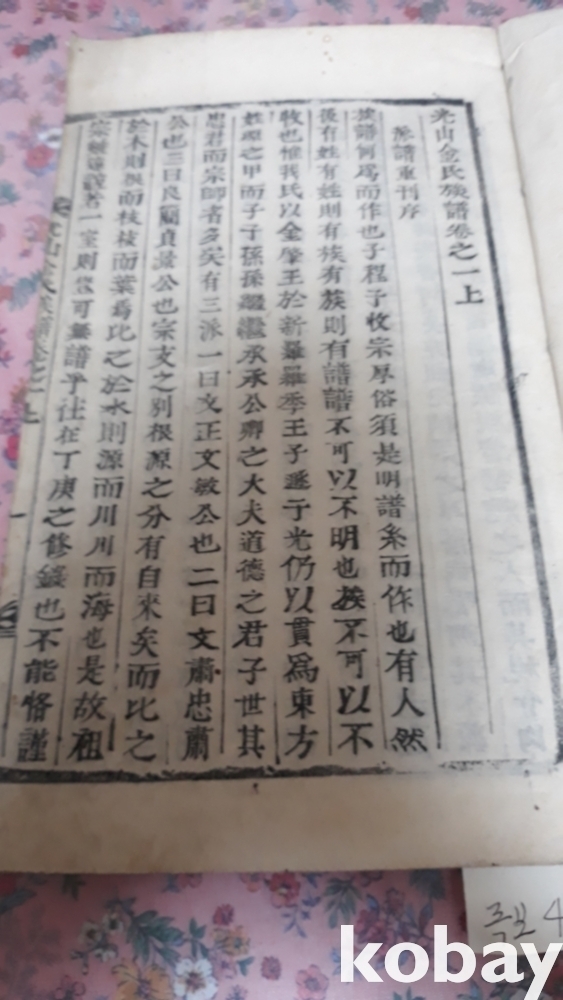 光山金氏族譜卷之一上
族譜重刊序
族譜何爲而作也子程子收宗厚俗須是明譜系而作也有人然
後有姓有姓則有族有族則有譜譜不可以不明也族不可以不
牧也惟我氏以金肇王於新羅羅季王子遯于光仍以貫爲東方
姓理之甲而子子孫孫繼繼承承公卿之大夫道德之君子世其
忠君而宗師者多矣有三派一曰文正文敏公也二曰文肅忠肅
公也三曰良簡貞公也宗支之別根源之分有自來矣而比之
於木則根而枝枝而葉爲比之於水則源而川川而海也是故祖
宗雖遠義者一室則豈可無譜乎往在丁庚之修鏤也不能恪謹
光山金氏族譜卷之一上
족보 4
kobay